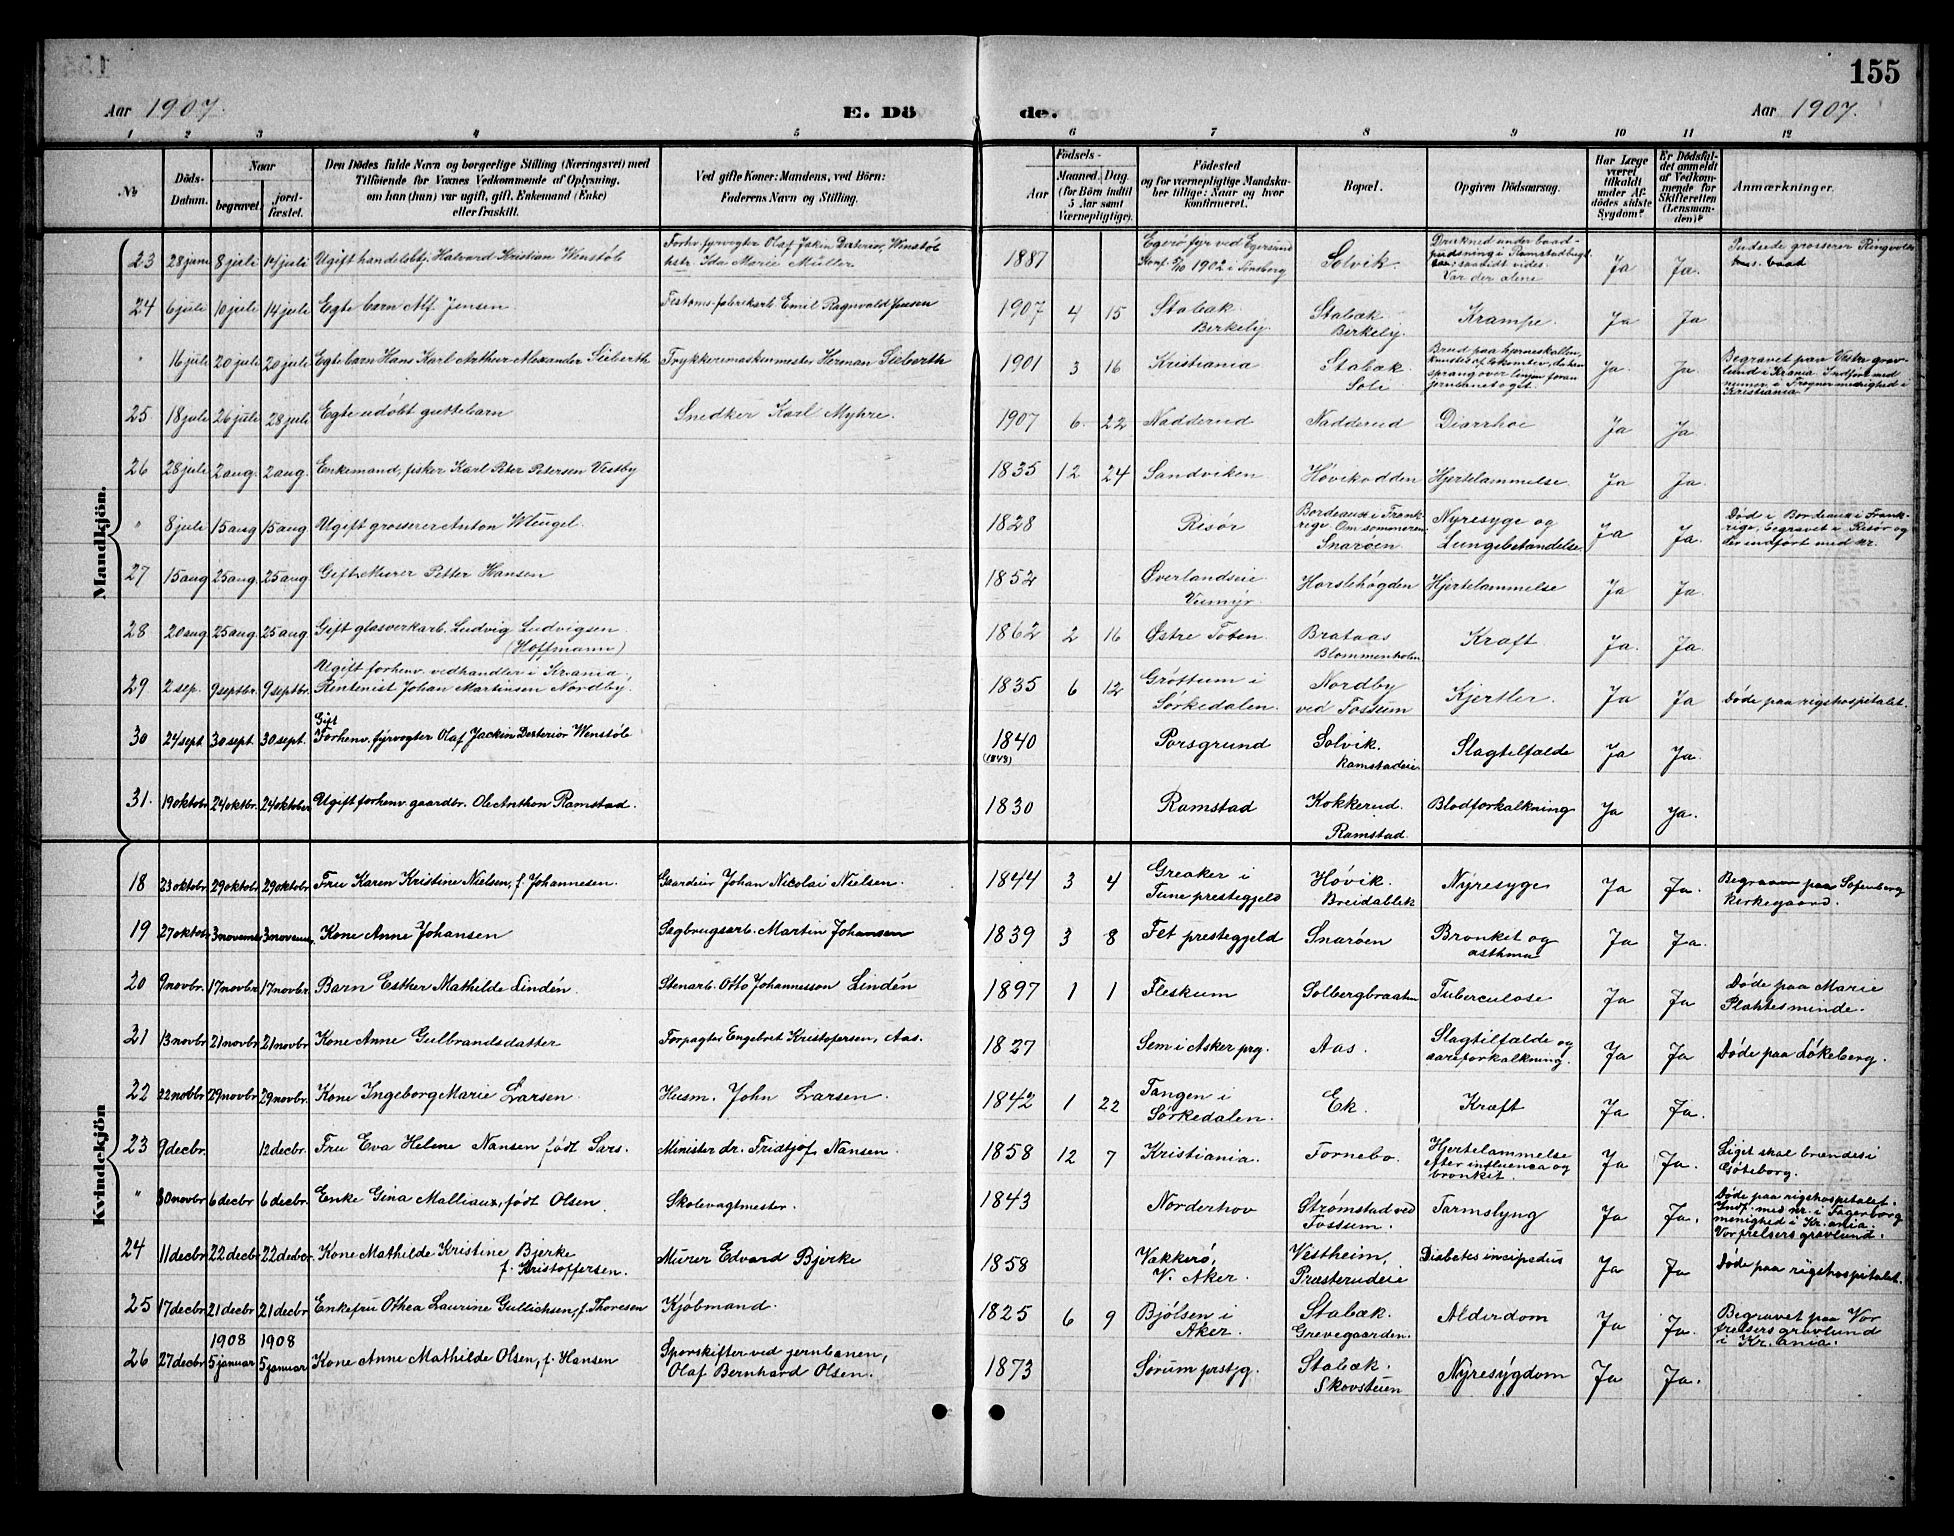 155
Aar 1907.
E. Dö
de.
Aar 1907.
1 2 3 4 5 6 7 8 9 10 11 12
No
Döds-Datum.
Naar
begravet.
jord-fæstet.
Den Dödes fulde Navn og borgerlige Stilling (Næringsvei) med
Tilföiende for Voxnes Vedkommende af Oplysning,
om han (hun) var ugift, gift, Enkemand (Enke)
eller fraskilt.
Ved gifte Koner: Mandens, ved Börn:
Faderens Navn og Stilling.
Födsels-
Aar
Maaned. Dag.
(for Börn indtil
5 Aar samt
Værnepligtige).
Födested
og for værnepligtige Mandska-
ber tillige: Naar og hvor
konfirmeret.
Bopæl.
Opgiven Dödsaarsag.
Har Læge
været
tilkaldt
under Af-
dödes sidste
Sygdom?
Er Dödsfal-
det anmeldt
af Vedkom-
mende for
Skifteretten
(Lensman-
den)?
Anmærkninger.
Mandkjön.
23 28 juni 8 juli 14 juli Ugift handelsbtj. Halvard Kristian Wenstöb
Forhv. fyrvogter Olaf Jakin Dexteriör Wenstöb
hstr. Ida Marie Müller
1887
Egerö fyr ved Egersund
Konf. 5/10 1902 i
Solvik
Drukned under baad-
Var der alene
Ja Ja.
grosserer
baad
24 6 juli 10 juli 14 juli Egte barn Alf Jensen
Emil Ragnvald Jensen
1907 4 15 Stabæk
Berkely.
Stabæk
Berkely
Krampe. Ja Ja
" 16 juli 20 juli 20 juli Egte barn Hans Karl Arthur Alexander Sieberth Trykkerimaskinmester Herman Sieberth
1901 3 16 Kristiania
Stabæk
Soli
Brud paa hjerneskallen,
sprang over linjen foran
jernbanetoget.
Ja. Ja
Begravet paa Vestre grav-
lund i Krania. Indført med
numer i Frogner menighed i
Kristiania
25 18 juli 26 juli 28 juli Egte udöbt guttebarn Snedker Karl Myhre.
1907 6 22 Nadderud Nadderud Diarrhoe Ja Ja
26 28 juli 2 aug. 2 aug. Enkemand, fisker Karl Peter Petersen Vestby
1835 12 24 Sandviken Hövikodden Hjertelammelse. Ja Ja.
" 8 juli 15 aug 15 aug Ugift grosserer Anton Wleugel.
1828 Risör
Bordeaux i Frank-
rige. Om sommeren
Snaröen
Nyresyge og
Lungebetændelse.
Ja Ja.
Död i Bordeaux i Frank-
rige, begravet i Risör og
der indført med nr.
27 15 aug 25 aug. 25 aug Gift. Murer Petter Hansen
1852 Överlandseie
Horslehögden Hjertelammelse Ja Ja
28 20 aug 25 aug. 25 aug Gift glasverkarb. Ludvig Ludvigsen
(Hoffmann)
1862 2 16 Östre Toten. Brataas
Blommenholm
Kræft Ja. Ja.
29 2 sep. 9 septbr. 9 septbr. Ugift forhenv. vedhandler i Krania.
Rentenist Johan Martinsen Nordby.
1835 6 12 Gröttum i
Sörkedalen.
Nordby
ved Fossum
Kjertler. Ja Ja Döde paa rigshospitalet.
30 24 sept 30 sept. 30 sept. Gift
Forhenv. fyrvogter Olaf Jackin Dexteriör Wenstöb
1840
(1843)
Porsgrund Solvik.
Ramstadeie
Slagtilfælde Ja Ja.
31. 19 oktobr 24 oktbr. 24 oktober Ugift forhenv. gaardbr. Ole Anthon Ramstad.
1830 Ramstad Kokkerud.
Ramstad.
Blodforkalkning Ja Ja.
Kvindekjön
18 23 oktobr 29 oktobr 29 oktobr Fru Karen Kristine Nielsen, f. Johannesen. Gaardeier Johan Nicolai Nielsen.
1844 3 4 Greaker i
Tune prestegjeld
Hövik.
Breidablik
Nyresyge Ja Ja.
Begraven paa Sofienberg
kirkegaard.
19 27 oktobr 3 novembr 3 novembr. Kone Anne Johansen Sagbrugsarb. Martin Johansen
1839 3 8 Fet prestegjeld Snaröen Bronkit og
asthma
Ja Ja.
20 9 novbr. 17 novbr. 17 novbr. Barn Esther Mathilde Lindén. Stenarb. Otto Johannesson Lindén
1897 1 1 Fleskum Solbergbraaten Tuberculose Ja Ja
Döde paa Marie
Plahtes minde.
21 13 novbr 21 novbr 21 novbr Kone Anne Gulbrandsdatter Forpagter Engebret Kristofersen, Aas.
1827 Sem i Asker prg. Aas. Slagtilfælde og
aareforkalkning.
Ja Ja Döde paa Lökeberg.
22 22 novbr 29 novbr 29 novbr. Kone Ingeborg Marie Larsen. Husm. John Larsen.
1842 1 22 Tangen i
Sörkedalen.
Ek. Kræft Ja Ja.
23 9 decbr. 12 decbr. Fru Eva Helene Nansen født Sars. Minister dr. Fridtjof Nansen.
1858 12 7 Kristiania. Fornebo. Hjertelammelse
efter influenca og
bronkit.
Ja Ja.
Liget skal brændes i
Göteborg.
" 30 novbr 6 decbr 6 decbr. Enke Gina Malliaux, født Olsen Skolevagtmester.
1843 Norderhov Strömstad ved
Fossum.
Tarmslyng Ja Ja.
Döde paa rigshospitalet.
Indf. med nr. i Fagerborg
menighed i Kr.ania.
Vor frelsers gravlund.
24 11 decbr 22 decbr 22 decbr. Kone Mathilde Kristine Bjerke
f. Kristoffersen.
Murer Edvard Bjerke
1858 Vækkerö,
V. Aker.
Vestheim,
Præsterudeie
Diabetes incipedus Ja Ja Döde paa rigshospitalet.
25 17 decbr 21 decbr 21 decbr Enkefru Othea Laurine Gullichsen, f. Thoresen Kjöbmand.
1825 6 9 Bjölsen i
Aker.
Stabæk.
Grevegaarden.
Alderdom Ja Ja.
Begravet paa Vor
frelsers gravlund
i Kr.ania.
1908 1908
26 27 decbr 5 januar 5 januar Kone Anne Mathilde Olsen, f. Hansen
Sporskifter ved jernbanen,
Olaf Bernhard Olsen.
1873 Sörum prstgj. Stabæk.
Skovstuen
Nyresygdom Ja Ja.